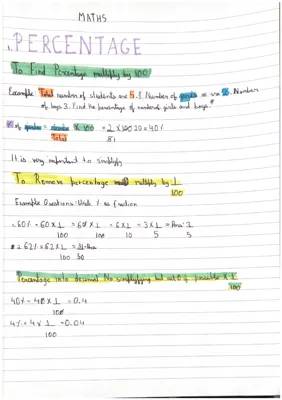 MATHS
1. PERCENTAGE
To Find Percentage multiply by 100
Example Total number of students are 5. Number of girls 2. Number
of boys 3. Find the percentage of number of girls and boys?
% of × 100 = 2 × 100 20 = 40%
Total 51
It is very important to simplify
To Remove percentage multiply by 1
100
Example Questions: Write % as fraction
= 60% = 60 × 1 = 60 × 1 = 6 × 1 = 3 × 1 = Ans: 3
100 100 10 5 5
2 = 62% = 62 × 1 = 31 Ans
100 50
Percentage into decimal No simplifying but cut 0 if possible × 1
100
40% = 40 × 1 = 0.4
100
4% = 4 × 1 = 0.04
100